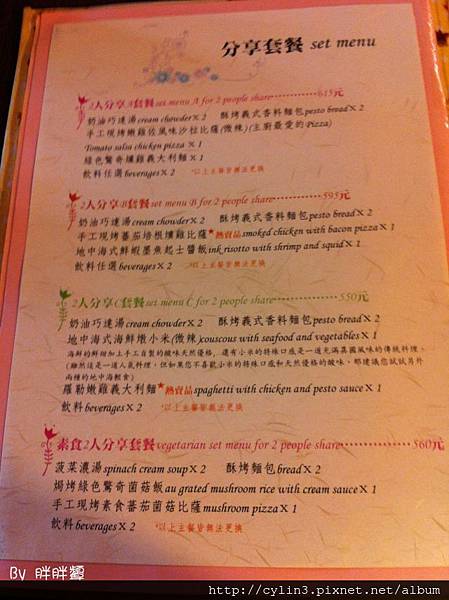 分享套餐 set menu
2人分享A套餐 set menu A for 2 people share 615元
奶油巧達湯cream chowder X 2 酥烤義式香料麵包pesto bread X 2
手工現烤嫩雞佐風味沙拉比薩(微辣)(主廚最愛的Pizza)
Tomato salsa chicken pizza X 1
綠色驚奇燻雞義大利麵 X 1
飲料任選beverages X 2 *以上主餐皆無法更換
2人分享B套餐 set menu B for 2 people share 595元
奶油巧達湯cream chowder X 2 酥烤義式香料麵包pesto bread X 2
手工現烤蕃茄培根燻雞比薩★熱賣品smoked chicken with bacon pizza X 1
地中海式鮮蝦墨魚起士醬飯ink risotto with shrimp and squid X 1
飲料任選beverages X 2 *以上主餐皆無法更換
2人分享C套餐set menu C for 2 people share 550元
奶油巧達湯cream chowder X 2 酥烤義式香料麵包pesto bread X 2
地中海式海鮮燉小米(微辣)couscous with seafood and vegetables X 1
海鮮的鮮甜加上手工自製的酸味天然優格，還有小米的特殊口感是一道充滿異國風味的傳統料理。
(雖然這是一道人氣料理，但如果您不喜歡小米的特殊口感和天然優格的酸味，那建議您試試另外
兩種的地中海輕食)
羅勒嫩雞義大利麵★熱賣品spaghetti with chicken and pesto sauce X 1
飲料beverages X 2 *以上主餐皆無法更換
素食2人分享套餐vegetarian set menu for 2 people share 560元
菠菜濃湯spinach cream soup X 2 酥烤麵包bread X 2
焗烤綠色驚奇菌菇飯au grated mushroom rice with cream sauce X 1
手工現烤素食蕃茄菌菇比薩mushroom pizza X 1
飲料beverages X 2 *以上主餐皆無法更換
By 胖胖
http://cylin3.pixnet.net/album